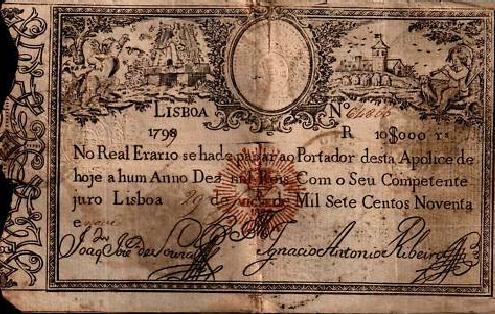 LISBOA Nº
1799 R 10$000 rs
No Real Erario se ha de pagar ao Portador desta Apolice de
hoje a hum Anno Dez mil Reis Com o Seu Competente
juro Lisboa 29 de de Mil Sete Centos Noventa
e nove
Joaq José de Souza Ignacio Antonio Ribeiro